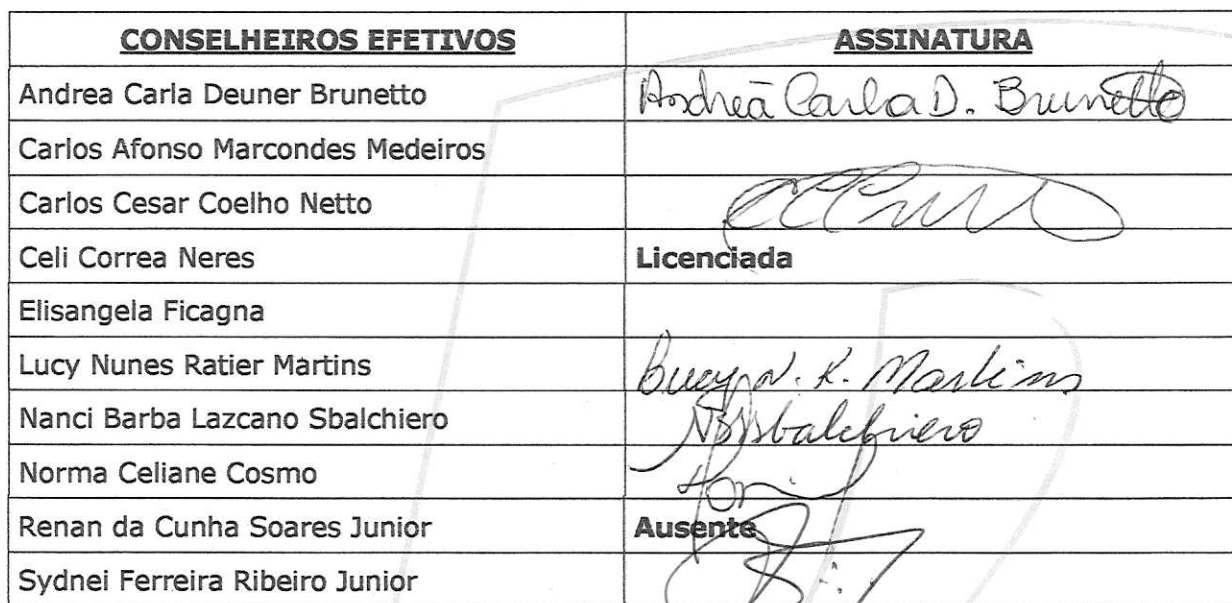 CONSELHEIROS EFETIVOS ASSINATURA
Andrea Carla Deuner Brunetto Andreā Carla D. Brunetto
Carlos Afonso Marcondes Medeiros
Carlos Cesar Coelho Netto
Celi Correa Neres Licenciada
Elisangela Ficagna
Lucy Nunes Ratier Martins Lucy N. R. Martins
Nanci Barba Lazcano Sbalchiero NBLSbalchiero
Norma Celiane Cosmo
Renan da Cunha Soares Junior Ausente
Sydnei Ferreira Ribeiro Junior